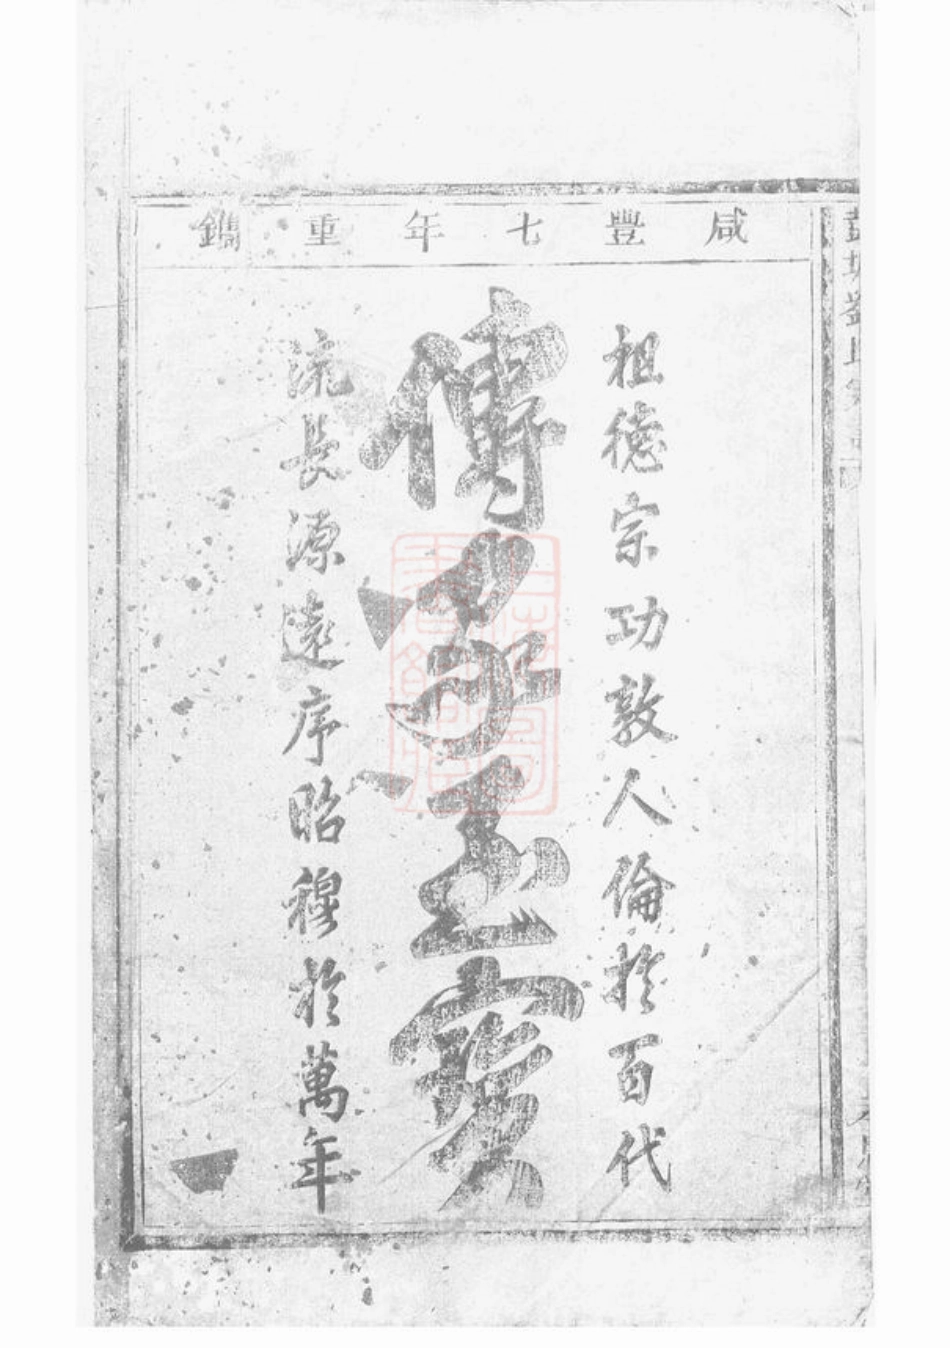 咸豐七年重鐫
祖德宗功敦人倫於百代
傳家至寶
流長源遠序昭穆於萬年
劉氏宗